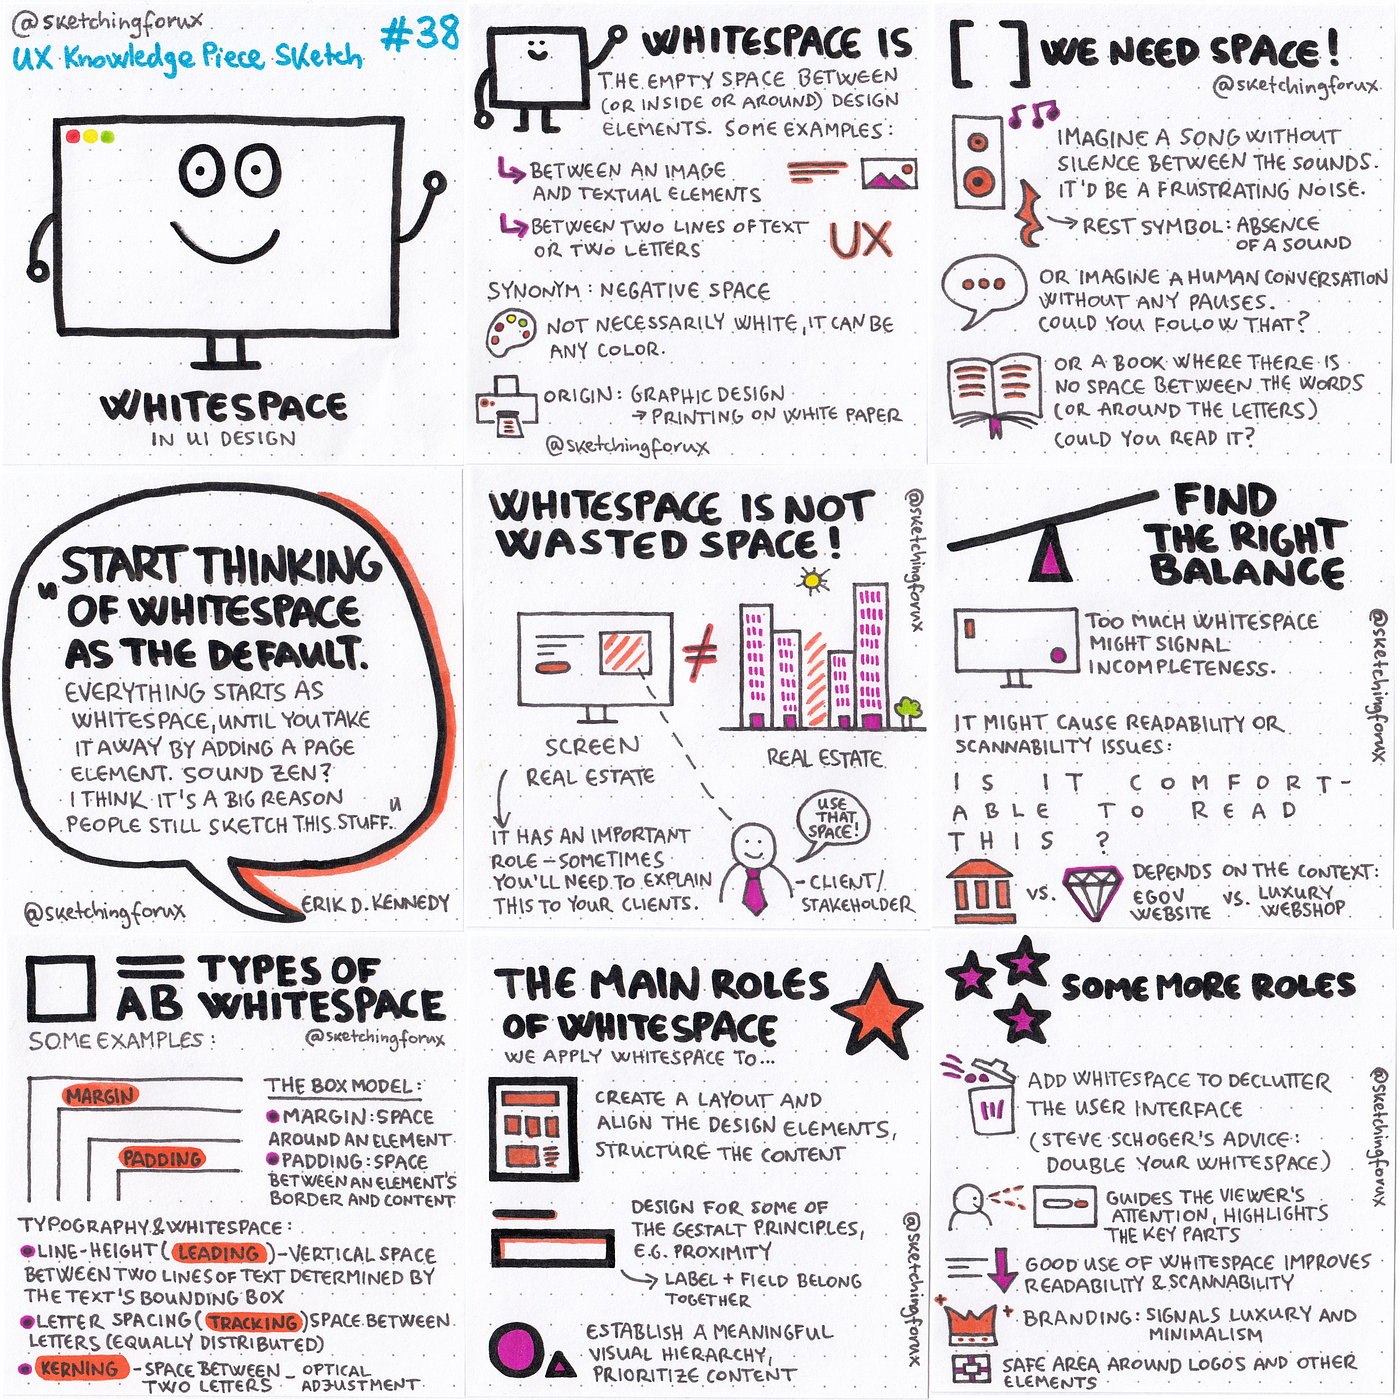 @sketchingforux
#38
UX Knowledge Piece Sketch
WHITESPACE
IN UI DESIGN
WHITESPACE IS
THE EMPTY SPACE BETWEEN
(OR INSIDE OR AROUND) DESIGN
ELEMENTS. SOME EXAMPLES:
BETWEEN AN IMAGE
AND TEXTUAL ELEMENTS
BETWEEN TWO LINES OF TEXT
OR TWO LETTERS
UX
SYNONYM: NEGATIVE SPACE
NOT NECESSARILY WHITE, IT CAN BE
ANY COLOR.
ORIGIN: GRAPHIC DESIGN
→ PRINTING ON WHITE PAPER
@sketchingforux
[ ] WE NEED SPACE!
@sketchingforux
IMAGINE A SONG WITHOUT
SILENCE BETWEEN THE SOUNDS.
IT'D BE A FRUSTRATING NOISE.
→ REST SYMBOL: ABSENCE
OF A SOUND
OR IMAGINE A HUMAN CONVERSATION
WITHOUT ANY PAUSES.
COULD YOU FOLLOW THAT?
OR A BOOK WHERE THERE IS
NO SPACE BETWEEN THE WORDS
(OR AROUND THE LETTERS)
COULD YOU READ IT?
"START THINKING
OF WHITESPACE
AS THE DEFAULT.
EVERYTHING STARTS AS
WHITESPACE, UNTIL YOU TAKE
IT AWAY BY ADDING A PAGE
ELEMENT. SOUND ZEN?
I THINK IT'S A BIG REASON
PEOPLE STILL SKETCH THIS STUFF."
ERIK D. KENNEDY
@sketchingforux
WHITESPACE IS NOT
WASTED SPACE!
@sketchingforux
≠
SCREEN
REAL ESTATE
REAL ESTATE
USE
THAT
SPACE!
IT HAS AN IMPORTANT
ROLE - SOMETIMES
YOU'LL NEED TO EXPLAIN
THIS TO YOUR CLIENTS.
- CLIENT/
STAKEHOLDER
FIND
THE RIGHT
BALANCE
@sketchingforux
TOO MUCH WHITESPACE
MIGHT SIGNAL
INCOMPLETENESS.
IT MIGHT CAUSE READABILITY OR
SCANNABILITY ISSUES:
IS IT COMFORT-
ABLE TO READ
THIS ?
VS.
DEPENDS ON THE CONTEXT:
EGOV VS. LUXURY
WEBSITE WEBSHOP
TYPES OF
AB WHITESPACE
SOME EXAMPLES:
@sketchingforux
MARGIN
PADDING
THE BOX MODEL:
MARGIN: SPACE
AROUND AN ELEMENT
PADDING: SPACE
BETWEEN AN ELEMENT'S
BORDER AND CONTENT
TYPOGRAPHY & WHITESPACE:
LINE-HEIGHT (LEADING) - VERTICAL SPACE
BETWEEN TWO LINES OF TEXT DETERMINED BY
THE TEXT'S BOUNDING BOX
LETTER SPACING (TRACKING) SPACE BETWEEN
LETTERS (EQUALLY DISTRIBUTED)
KERNING - SPACE BETWEEN - OPTICAL
TWO LETTERS ADJUSTMENT
THE MAIN ROLES
OF WHITESPACE
WE APPLY WHITESPACE TO...
CREATE A LAYOUT AND
ALIGN THE DESIGN ELEMENTS,
STRUCTURE THE CONTENT
DESIGN FOR SOME OF
THE GESTALT PRINCIPLES,
E.G. PROXIMITY
→ LABEL + FIELD BELONG
TOGETHER
ESTABLISH A MEANINGFUL
VISUAL HIERARCHY,
PRIORITIZE CONTENT
@sketchingforux
SOME MORE ROLES
ADD WHITESPACE TO DECLUTTER
THE USER INTERFACE
(STEVE SCHOGER'S ADVICE:
DOUBLE YOUR WHITESPACE)
GUIDES THE VIEWER'S
ATTENTION, HIGHLIGHTS
THE KEY PARTS
GOOD USE OF WHITESPACE IMPROVES
READABILITY & SCANNABILITY
BRANDING: SIGNALS LUXURY AND
MINIMALISM
SAFE AREA AROUND LOGOS AND OTHER
ELEMENTS
@sketchingforux